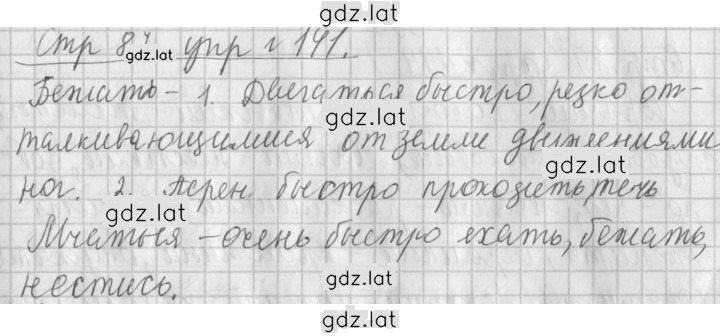 gdz.lat
Стр 84 упр г 141.
gdz.lat
Бежать - 1. Двигаться быстро, резко от-
gdz.lat
талкивающимися от земли движениями
gdz.lat
ног. 2. Перен. быстро проходить, течь
gdz.lat
Мчаться - очень быстро ехать, бежать,
gdz.lat
нестись.
gdz.lat